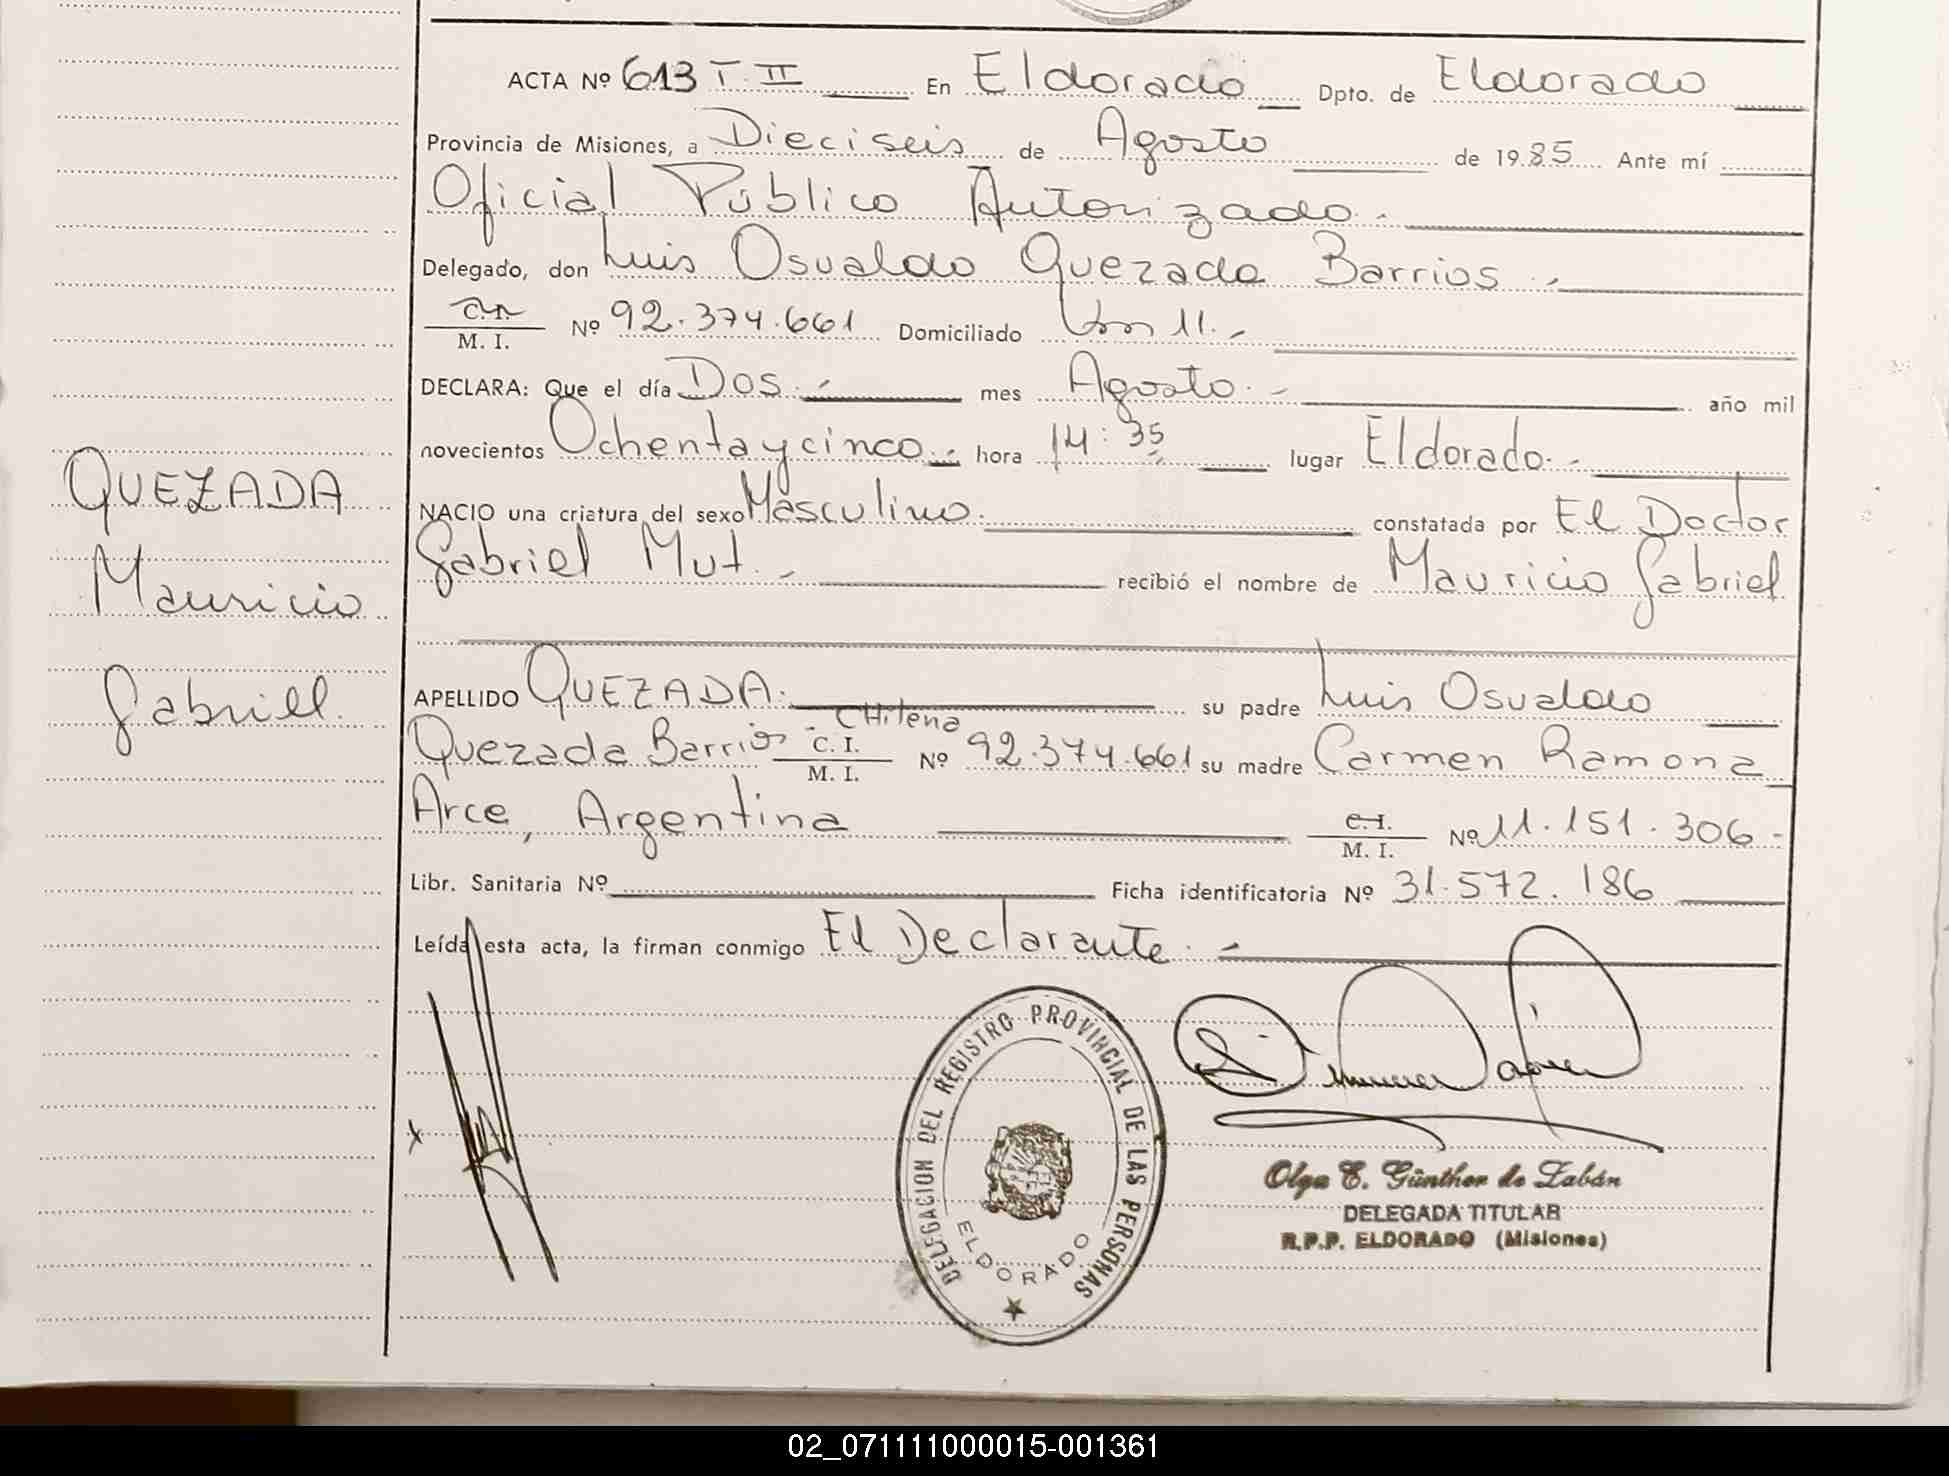 ACTA Nº 613 T. II En Eldorado Dpto. de Eldorado
Provincia de Misiones, a Dieciseis de Agosto de 1985 Ante mí
Oficial Público Autorizado.
Delegado, don Luis Osvaldo Quezada Barrios
C.I.
M. I. Nº 92.374.661 Domiciliado Km 11.
DECLARA: Que el día Dos. mes Agosto. año mil
novecientos Ochenta y cinco hora 14:35 lugar Eldorado.
NACIO una criatura del sexo Masculino. constatada por El Doctor
Gabriel Mut. recibió el nombre de Mauricio Gabriel
QUEZADA
Mauricio
Gabriell.
APELLIDO QUEZADA. su padre Luis Osvaldo
Chilena
Quezada Barrios C. I. Nº 92.374.661 su madre Carmen Ramona
M. I.
Arce, Argentina C.I. Nº 11.151.306
M. I.
Libr. Sanitaria Nº Ficha identificatoria Nº 31.572.186
Leída esta acta, la firman conmigo El Declarante.
x
DELEGACION DEL REGISTRO PROVINCIAL DE LAS PERSONAS
ELDORADO
Olga E. Günther de Zabán
DELEGADA TITULAR
R.P.P. ELDORADO (Misiones)
02_071111000015-001361